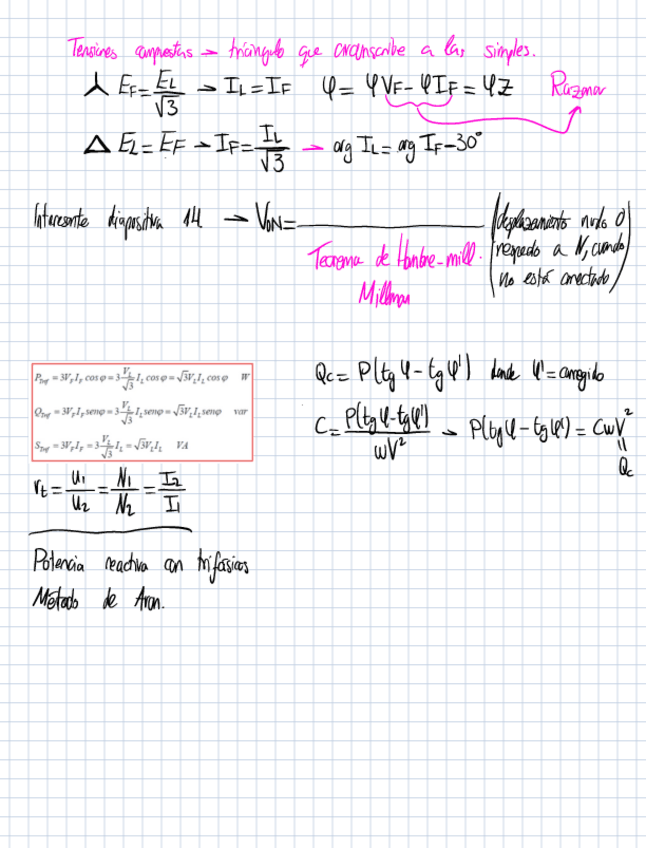 Tensiones compuestas → triángulo que circunscribe a las simples.
⅄ E_F = E_L/√3 → I_L = I_F φ = φV_F - φI_F = φZ Razonar
Δ E_L = E_F → I_F = I_L/√3 → arg I_L = arg I_F - 30°
Interesante diapositiva 14 → V_ON = ________ (desplazamiento nudo O
respecto a N, cuando
no está conectado)
Teorema de
Millman
P_Trif = 3V_F I_F cos φ = 3 V_L/√3 I_L cos φ = √3 V_L I_L cos φ W
Q_Trif = 3V_F I_F sen φ = 3 V_L/√3 I_L sen φ = √3 V_L I_L sen φ var
S_Trif = 3V_F I_F = 3 V_L/√3 I_L = √3 V_L I_L VA
Qc = P(tg φ - tg φ') donde φ' = corregido
C = P(tg φ - tg φ')/ωV² → P(tg φ - tg φ') = CωV²
=
Qc
r_t = U_1/U_2 = N_1/N_2 = I_2/I_1
Potencia reactiva con trifásicos
Método de Aron.